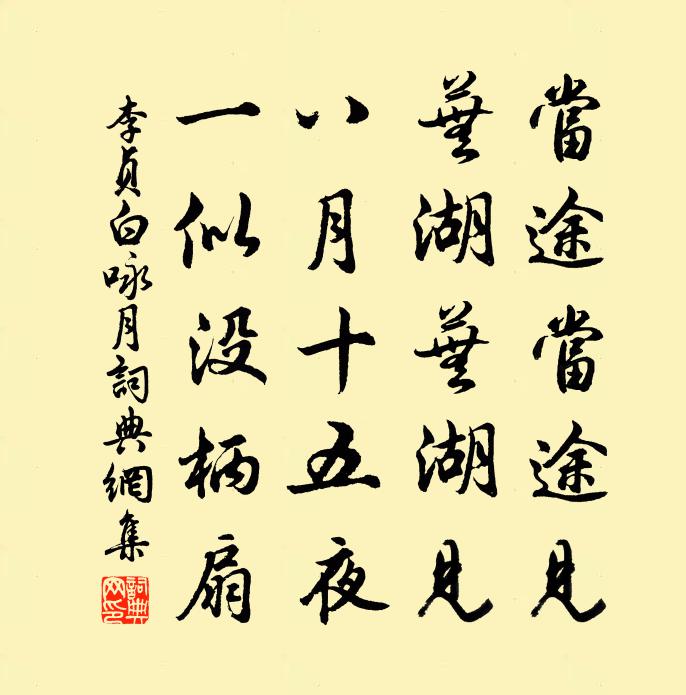 當途當途見
蕪湖蕪湖見
八月十五夜
一似没柄扇
李貞白咏月詞典網集
詞典網印